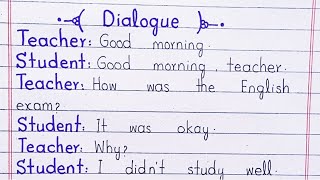 Dialogue
Teacher: Good morning.
Student: Good morning, teacher.
Teacher: How was the English
exam?
Student: It was okay.
Teacher: Why?
Student: I didn't study well.